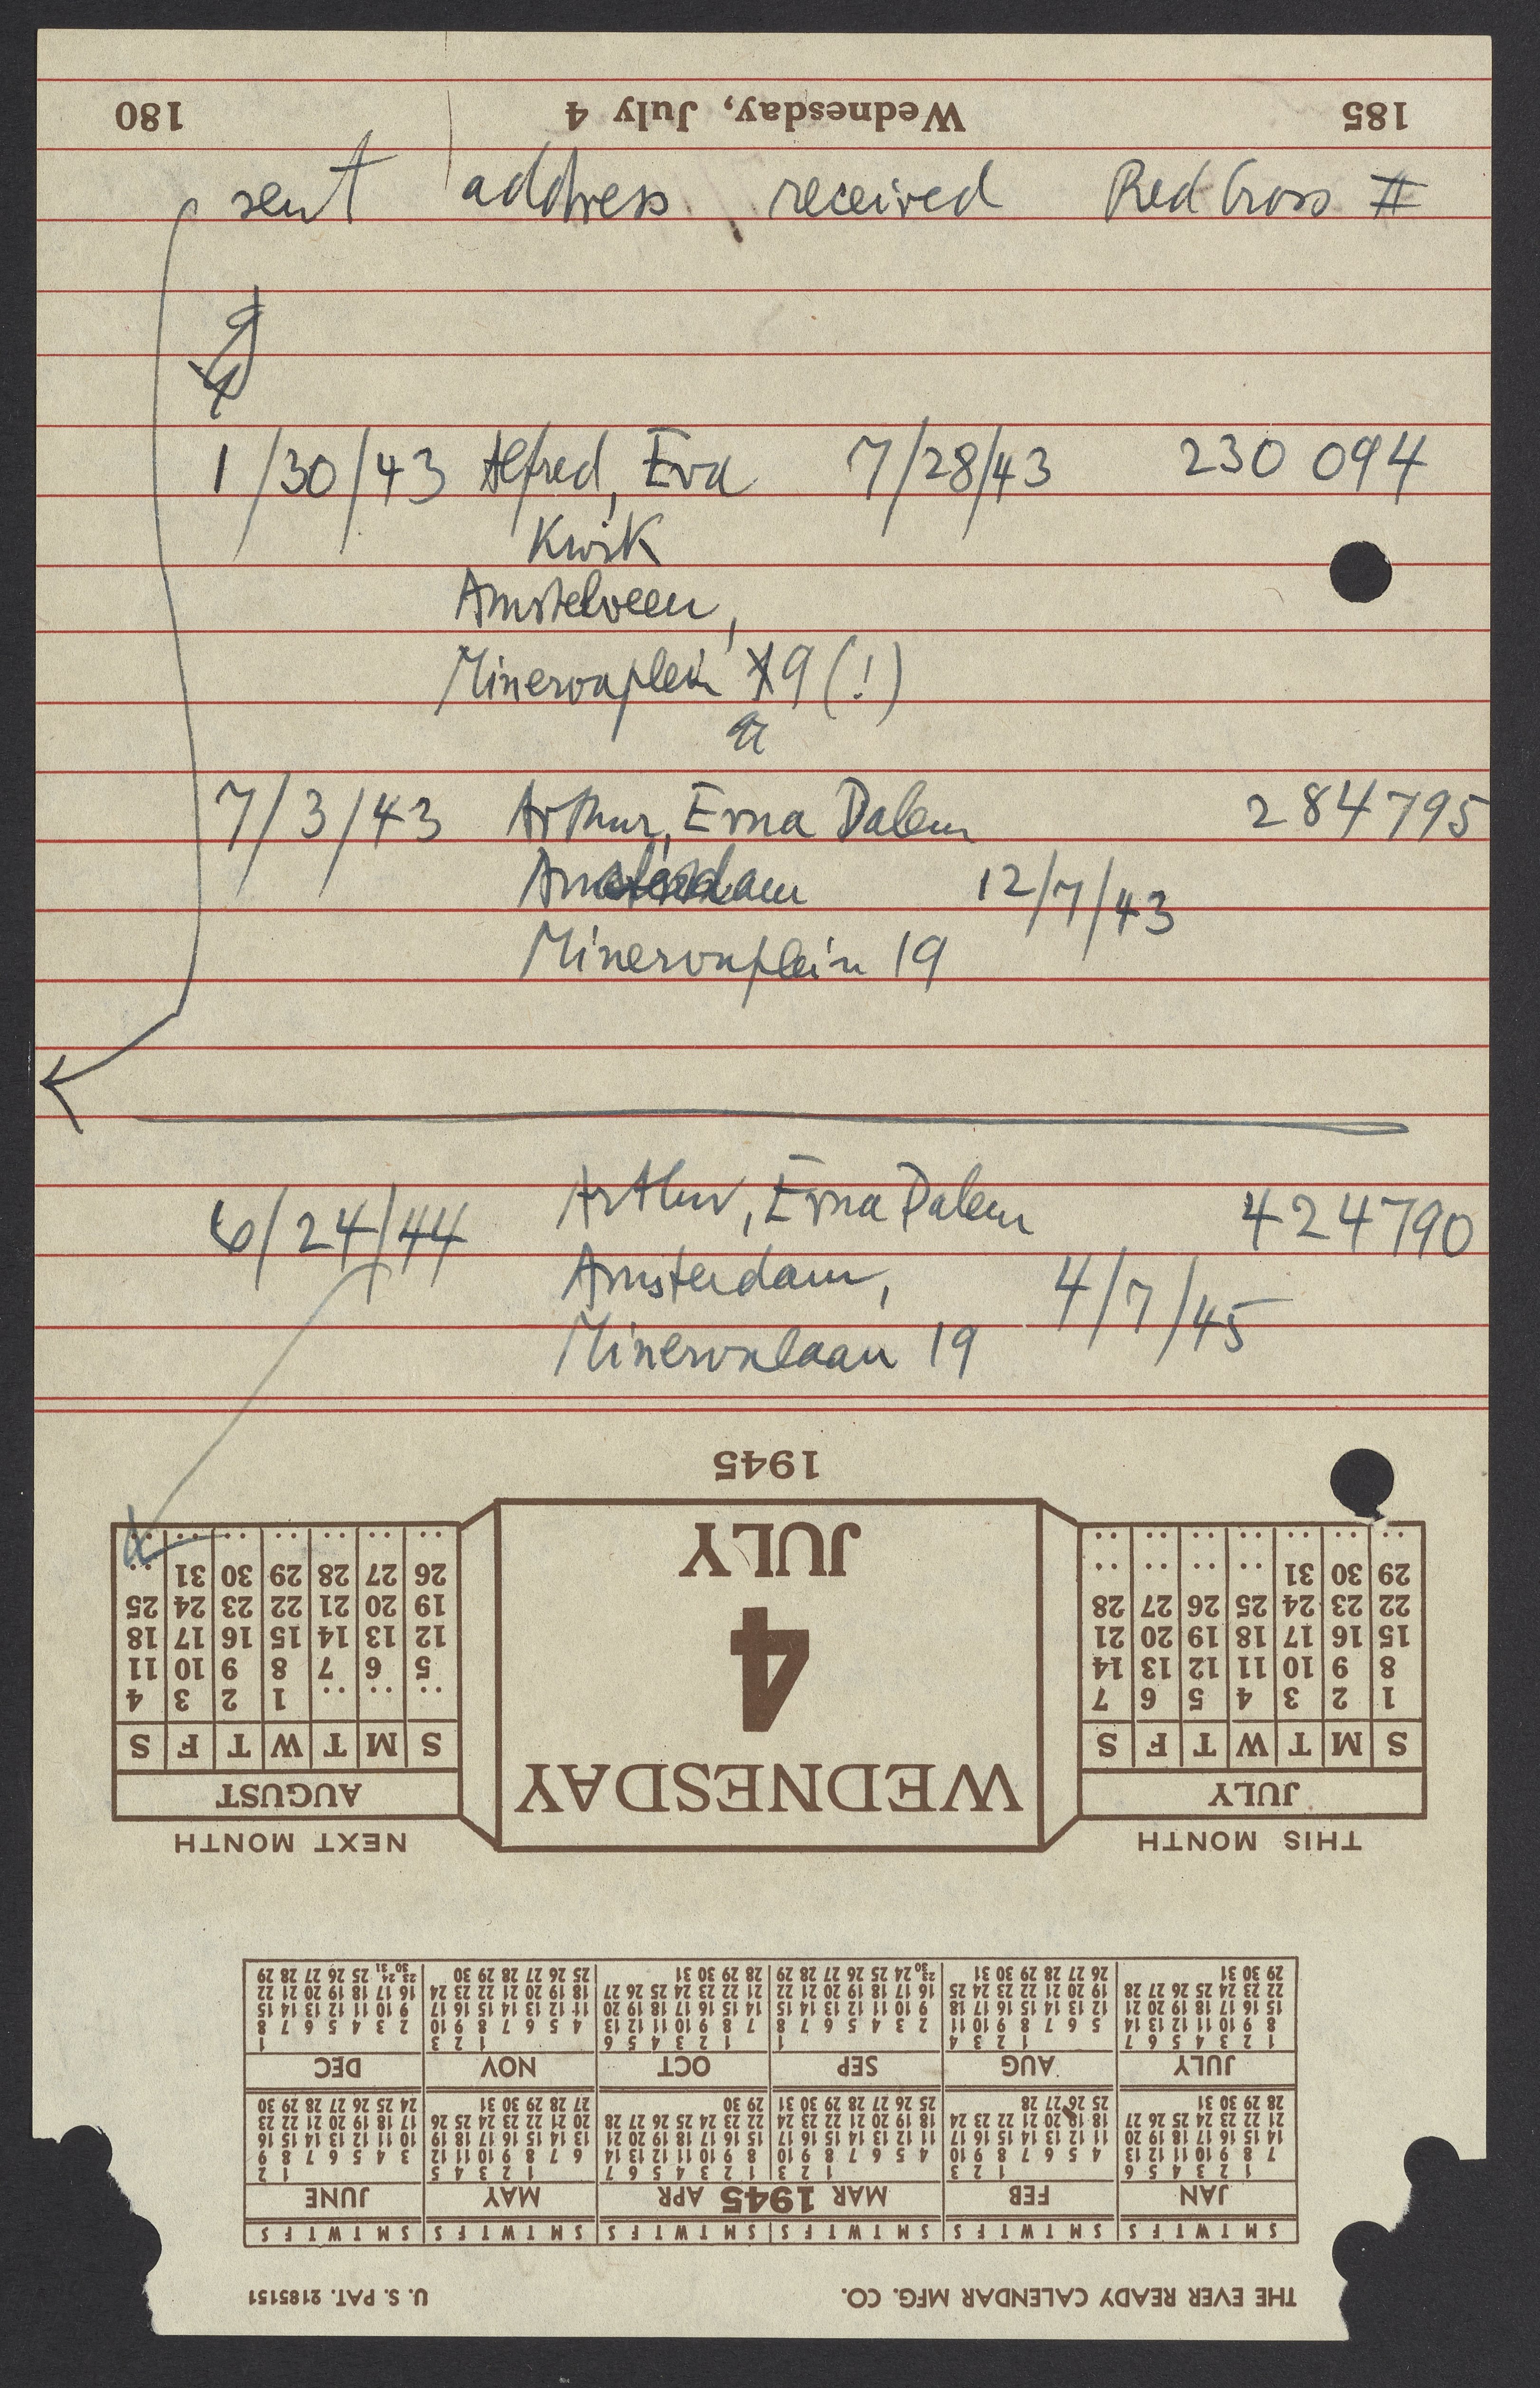 180 Wednesday, July 4 185
sent address received Red Cross #
1/30/43 Alfred, Eva 7/28/43 230 094
Kwik
Amstelveen,
Minervaplein 9 (!)
7/3/43 Arthur, Erna Dalem 284795
Amsterdam 12/7/43
Minervaplein 19
6/24/44 Arthur, Erna Dalem 424790
Amsterdam, 4/7/45
Minervalaan 19
THE EVER READY CALENDAR MFG. CO. U. S. PAT. 2185151
S M T W T F S S M T W T F S S M T W T F S S M T W T F S S M T W T F S S M T W T F S
JAN FEB MAR 1945 APR MAY JUNE
JULY AUG SEP OCT NOV DEC
THIS MONTH NEXT MONTH
JULY WEDNESDAY AUGUST
S M T W T F S
1 2 3 4 5 6 7
8 9 10 11 12 13 14
15 16 17 18 19 20 21
22 23 24 25 26 27 28
29 30 31
4
JULY
1945
S M T W T F S
.. .. .. 1 2 3 4
5 6 7 8 9 10 11
12 13 14 15 16 17 18
19 20 21 22 23 24 25
26 27 28 29 30 31